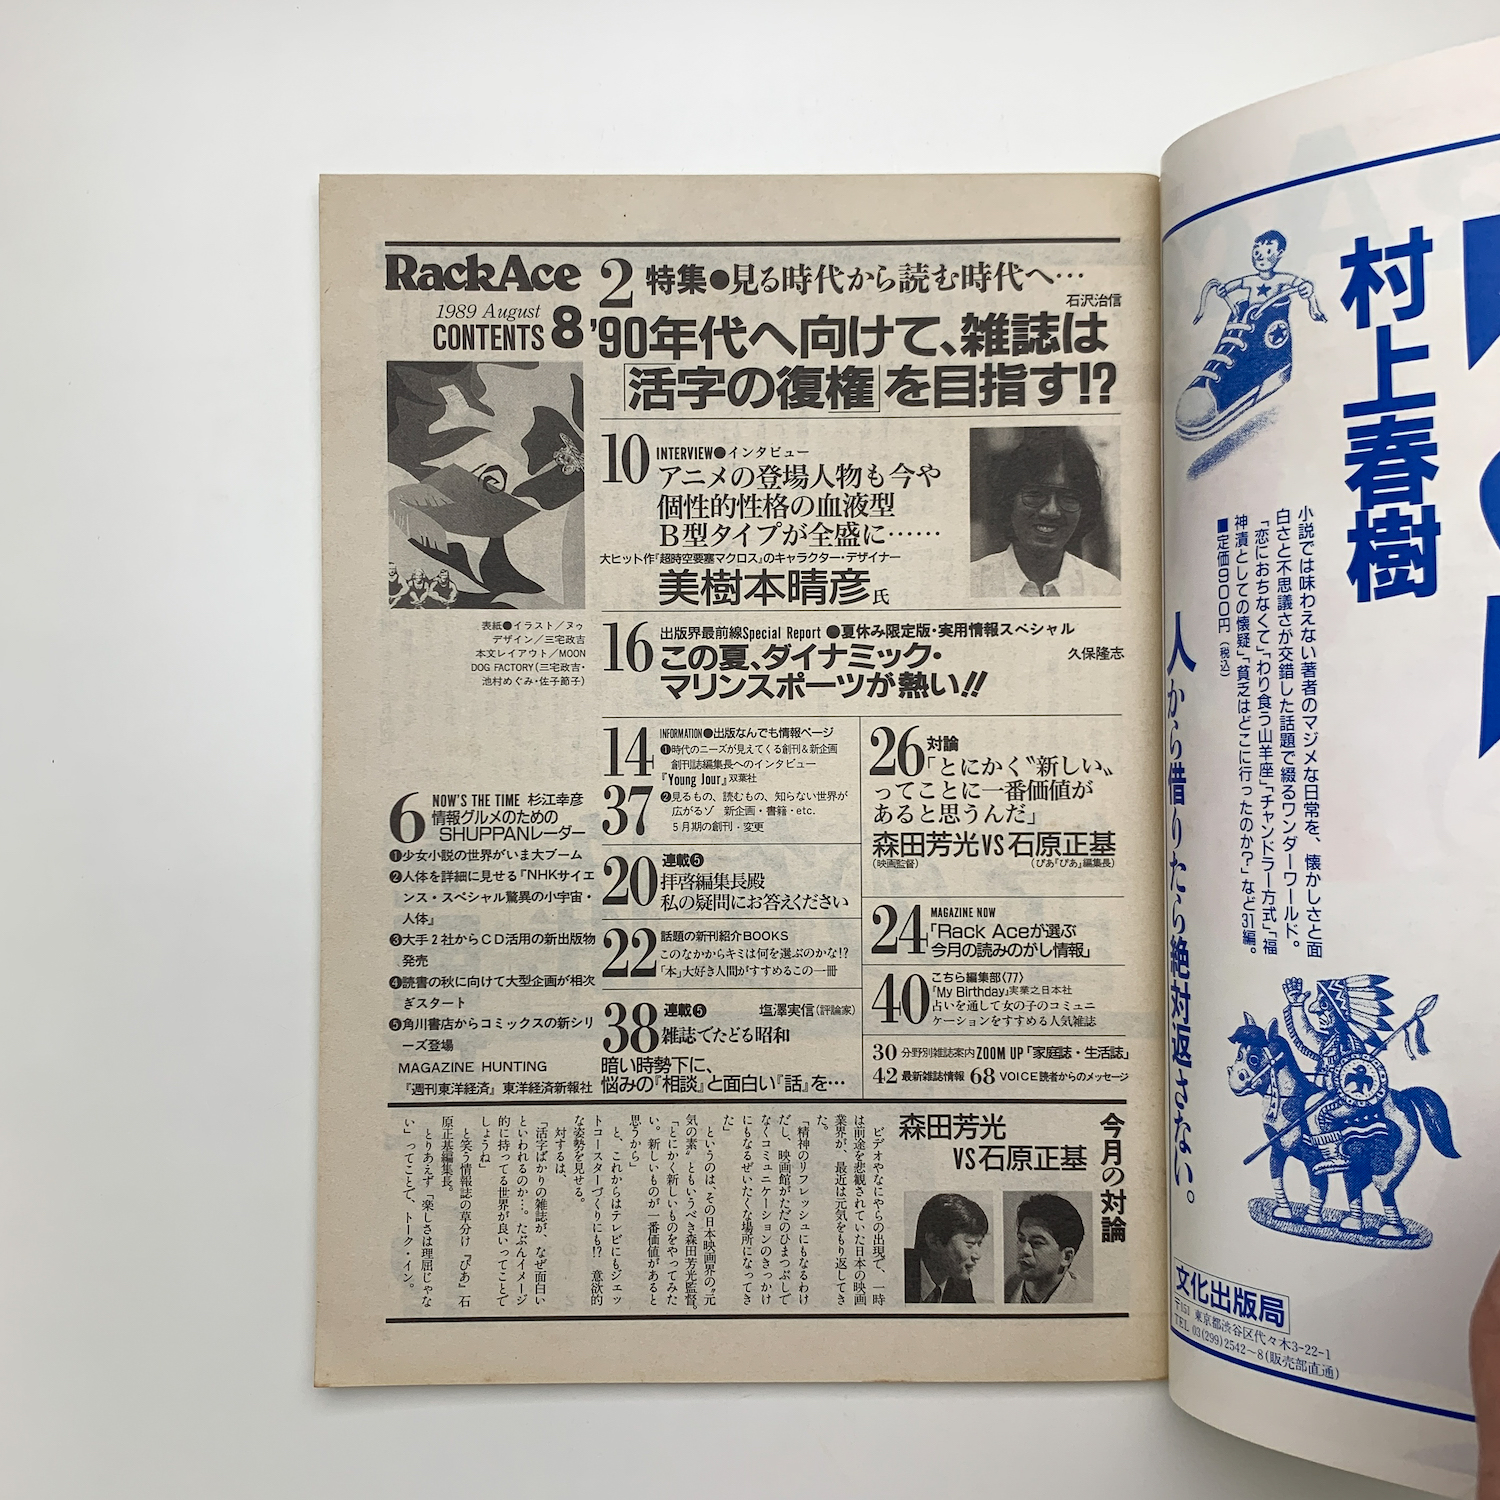 RackAce
1989 August
CONTENTS 8
2 特集●見る時代から読む時代へ…
石沢治信
'90年代へ向けて、雑誌は
「活字の復権」を目指す!?
表紙●イラスト／ヌゥ
デザイン／三宅政吉
本文レイアウト／MOON
DOG FACTORY(三宅政吉・
池村めぐみ・佐子節子)
10 INTERVIEW●インタビュー
アニメの登場人物も今や
個性的性格の血液型
B型タイプが全盛に……
大ヒット作『超時空要塞マクロス』のキャラクター・デザイナー
美樹本晴彦氏
16 出版界最前線Special Report ●夏休み限定版・実用情報スペシャル
この夏、ダイナミック・
マリンスポーツが熱い!!
久保隆志
6 NOW'S THE TIME 杉江幸彦
情報グルメのための
SHUPPANレーダー
❶少女小説の世界がいま大ブーム
❷人体を詳細に見せる「NHKサイエ
ンス・スペシャル驚異の小宇宙・
人体」
❸大手2社からCD活用の新出版物
発売
❹読書の秋に向けて大型企画が相次
ぎスタート
❺角川書店からコミックスの新シリ
ーズ登場
MAGAZINE HUNTING
『週刊東洋経済』東洋経済新報社
14 INFORMATION●出版なんでも情報ページ
❶時代のニーズが見えてくる創刊&新企画
創刊誌編集長へのインタビュー
『Young Jour』双葉社
37 ❷見るもの、読むもの、知らない世界が
広がるゾ 新企画・書籍・etc.
5月期の創刊・変更
20 連載❺
拝啓編集長殿
私の疑問にお答えください
22 話題の新刊紹介BOOKS
このなかからキミは何を選ぶのかな!?
「本」大好き人間がすすめるこの一冊
38 連載❺ 塩澤実信(評論家)
雑誌でたどる昭和
暗い時勢下に、
悩みの『相談』と面白い『話』を…
26 対論
「とにかく〝新しい〟
ってことに一番価値が
あると思うんだ」
森田芳光VS石原正基
(映画監督) (ぴあ『ぴあ』編集長)
24 MAGAZINE NOW
「Rack Aceが選ぶ
今月の読みのがし情報」
40 こちら編集部〈77〉
『My Birthday』実業之日本社
占いを通して女の子のコミュニ
ケーションをすすめる人気雑誌
30 分野別雑誌案内ZOOM UP「家庭誌・生活誌」
42 最新雑誌情報 68 VOICE読者からのメッセージ
今月の対論
森田芳光
VS石原正基
ビデオやなにやらの出現で、一時
は前途を悲観されていた日本の映画
業界が、最近は元気をもり返してき
た。
「精神のリフレッシュにもなるわけ
だし、映画館がただのひまつぶしで
なくコミュニケーションのきっかけ
にもなるぜいたくな場所になってき
た」
というのは、その日本映画界の〝元
気の素〟ともいうべき森田芳光監督。
「とにかく新しいものをやってみた
い。新しいものが一番価値があると
思うから」
と、これからはテレビにもジェッ
トコースターづくりにも!? 意欲的
な姿勢を見せる。
対するは、
「活字ばかりの雑誌が、なぜ面白い
といわれるのか…。たぶんイメージ
的に持ってる世界が良いってことで
しょうね」
と笑う情報誌の草分け『ぴあ』石
原正基編集長。
とりあえず「楽しさは理屈じゃな
い」ってことで、トーク・イン。
村上春樹
小説では味わえない著者のマジメな日常を、懐かしさと面
白さと不思議さが交錯した話題で綴るワンダーワールド。
「恋におちなくて」「わり食う山羊座」「チャンドラー方式」「福
神漬としての懐疑」「貧乏はどこに行ったのか?」など31編。
■定価900円(税込)
人から借りたら絶対返さない。
文化出版局
〒151 東京都渋谷区代々木3-22-1
TEL 03(299)2542〜8(販売部直通)